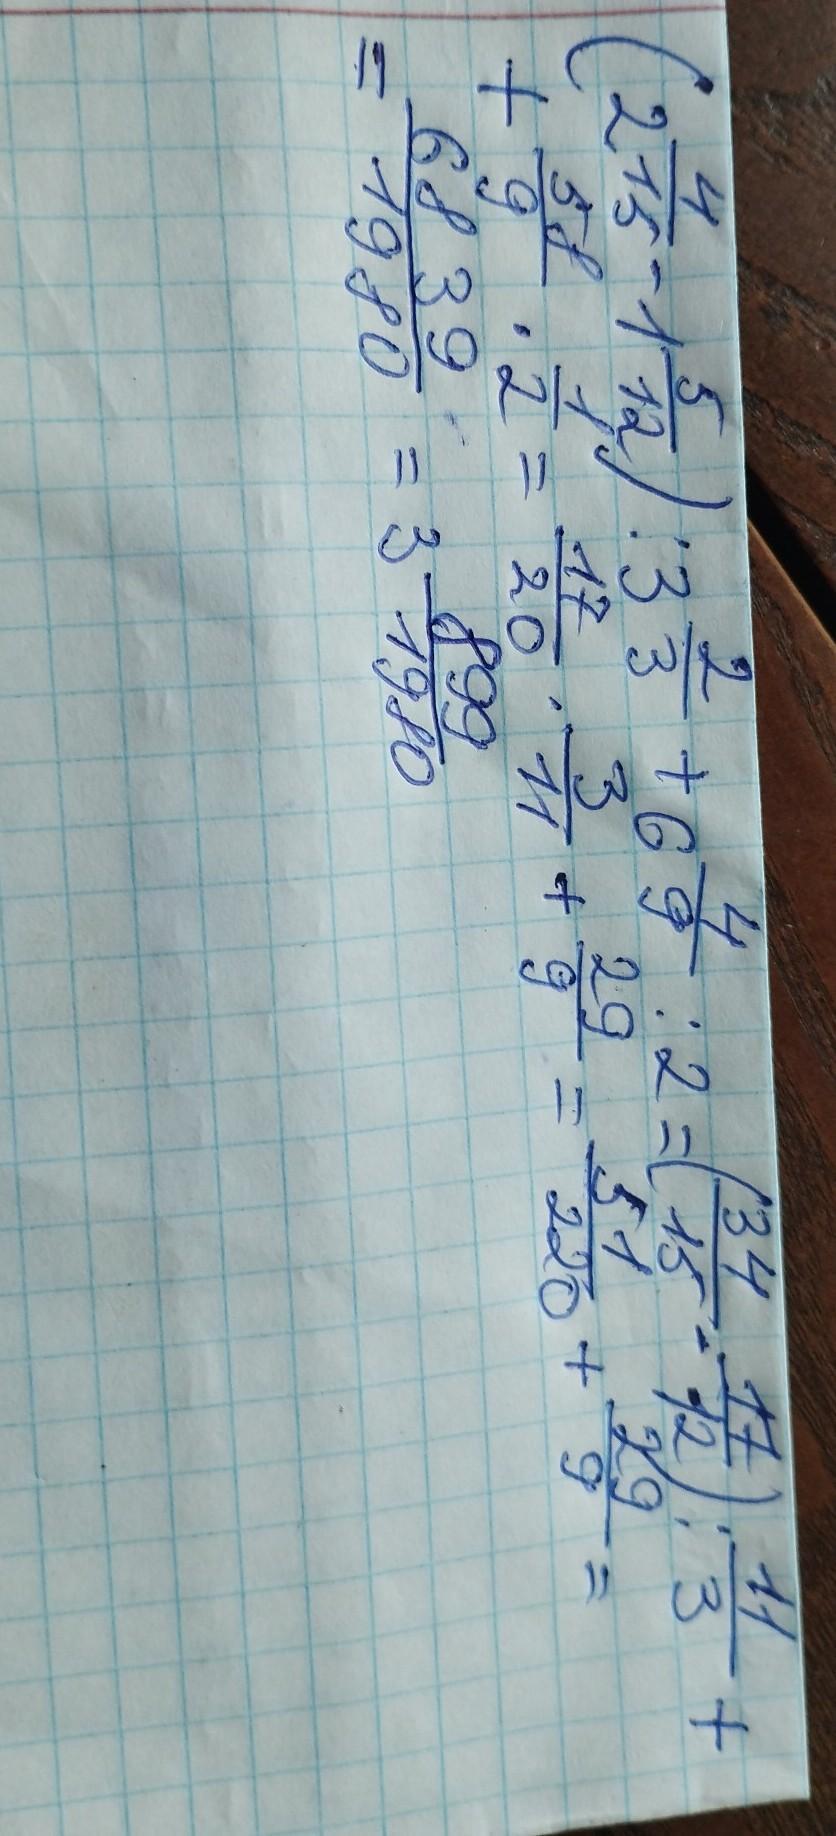 (2 4/15 - 1 5/12) : 3 2/3 + 6 4/9 : 2 = (34/15 - 17/12) : 11/3 +
+ 58/9 · 1/2 = 17/20 · 3/11 + 29/9 = 51/220 + 29/9 =
= 6839/1980 = 3 899/1980